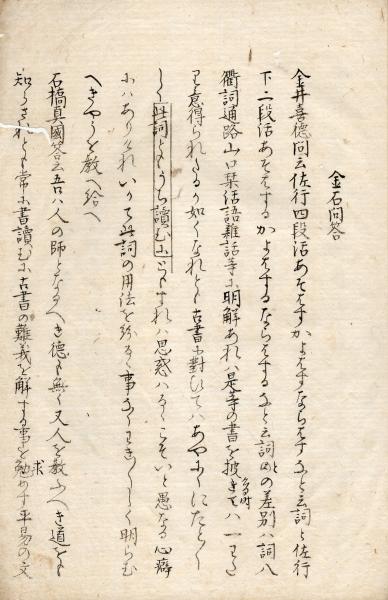 金石問答
金井喜徳問云佐行四段活あそはすかよはすならはすなと云詞と佐行
下二段活あそはするかよはするならはするなと云詞との差別ハ詞八
衢詞通路山口栞活語雑話等に明解あれハ是等の書を披き見る時ハ一わたり
意得られたるか如くなれとも古書に対ひてハあやしくにたと〳〵
しく此詞ともうち讀むにともすれハ思惑ハるゝこそいと愚なる心癖
にハありけれいかて此詞の用法を
事なくわき
しく明らむ
へきやうを教へ給へ
石橋真國答云吾ハ人の師となるへき徳も無く又人を教ふへき道をも
知らされとも常に書讀むに古書の難義を解する事を勉めす平易の文
求